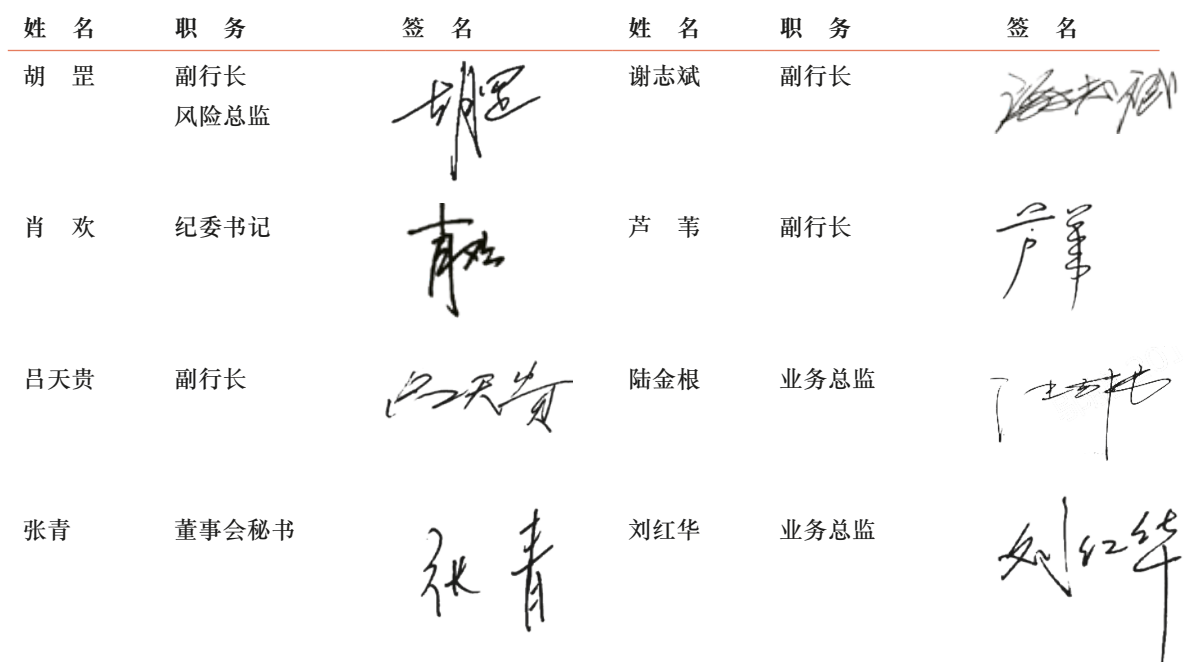 姓 名 职 务 签 名 姓 名 职 务 签 名
胡 罡 副行长 胡罡 谢志斌 副行长 谢志斌
风险总监
肖 欢 纪委书记 肖欢 芦 苇 副行长 芦苇
吕天贵 副行长 吕天贵 陆金根 业务总监
张青 董事会秘书 张青 刘红华 业务总监 刘红华